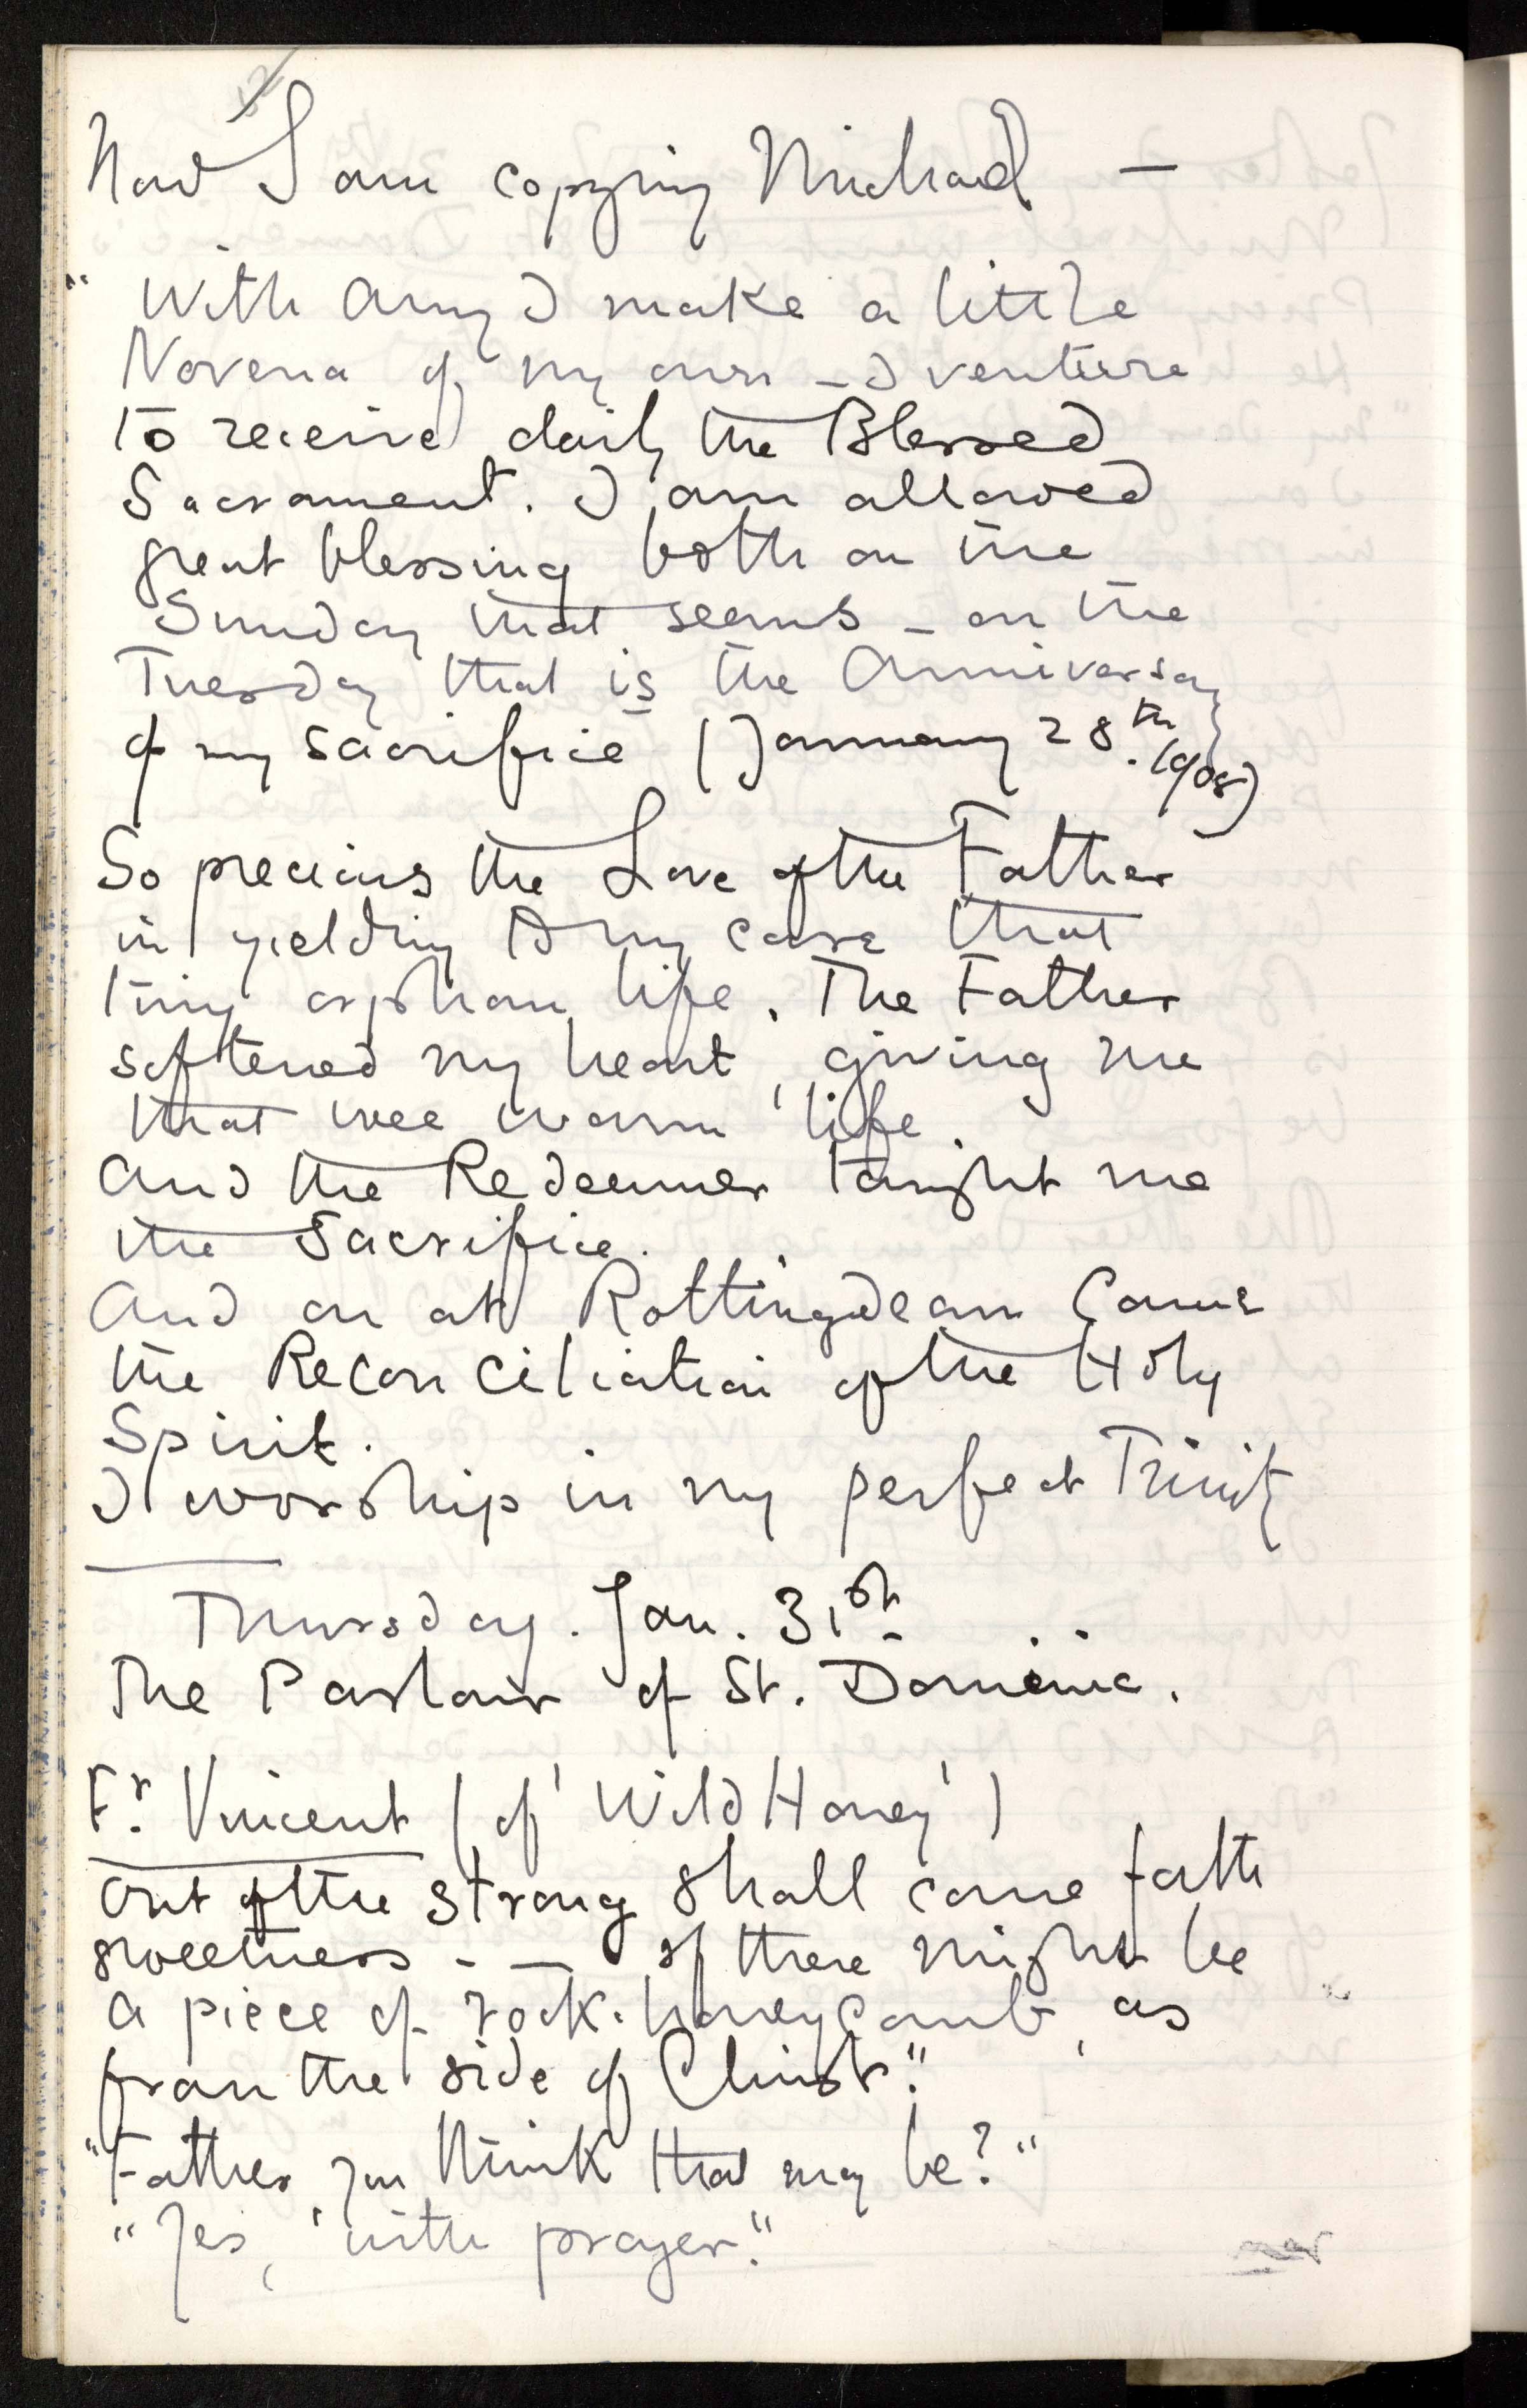 Now I am copying Michael —
" With Amy I make a little
Novena of my own – I venture
to receive daily the Blessed
Sacrament. I am allowed
great blessing both on the
Sunday that seems – on the
Tuesday that is the Anniversary
of my sacrifice (January 28th. 1908)
So precious the Love of the Father
in yielding to my care that
tiny orphan life. The Father
softened my heart, giving me
that wee warm life.
And the Redeemer taught me
the Sacrifice.
And on at Rottingdean Came
the Reconciliation of the Holy
Spirit.
I worship in my perfect Trinity
Thursday. Jan. 31st.
The Parlour of St. Dominic.
Fr. Vincent (of 'Wild Honey')
Out of the strong shall come forth
sweetness - — if there might be
a piece of rock-honeycomb, as
from the side of Christ."
"Father you think that may be?"
"Yes, with prayer."